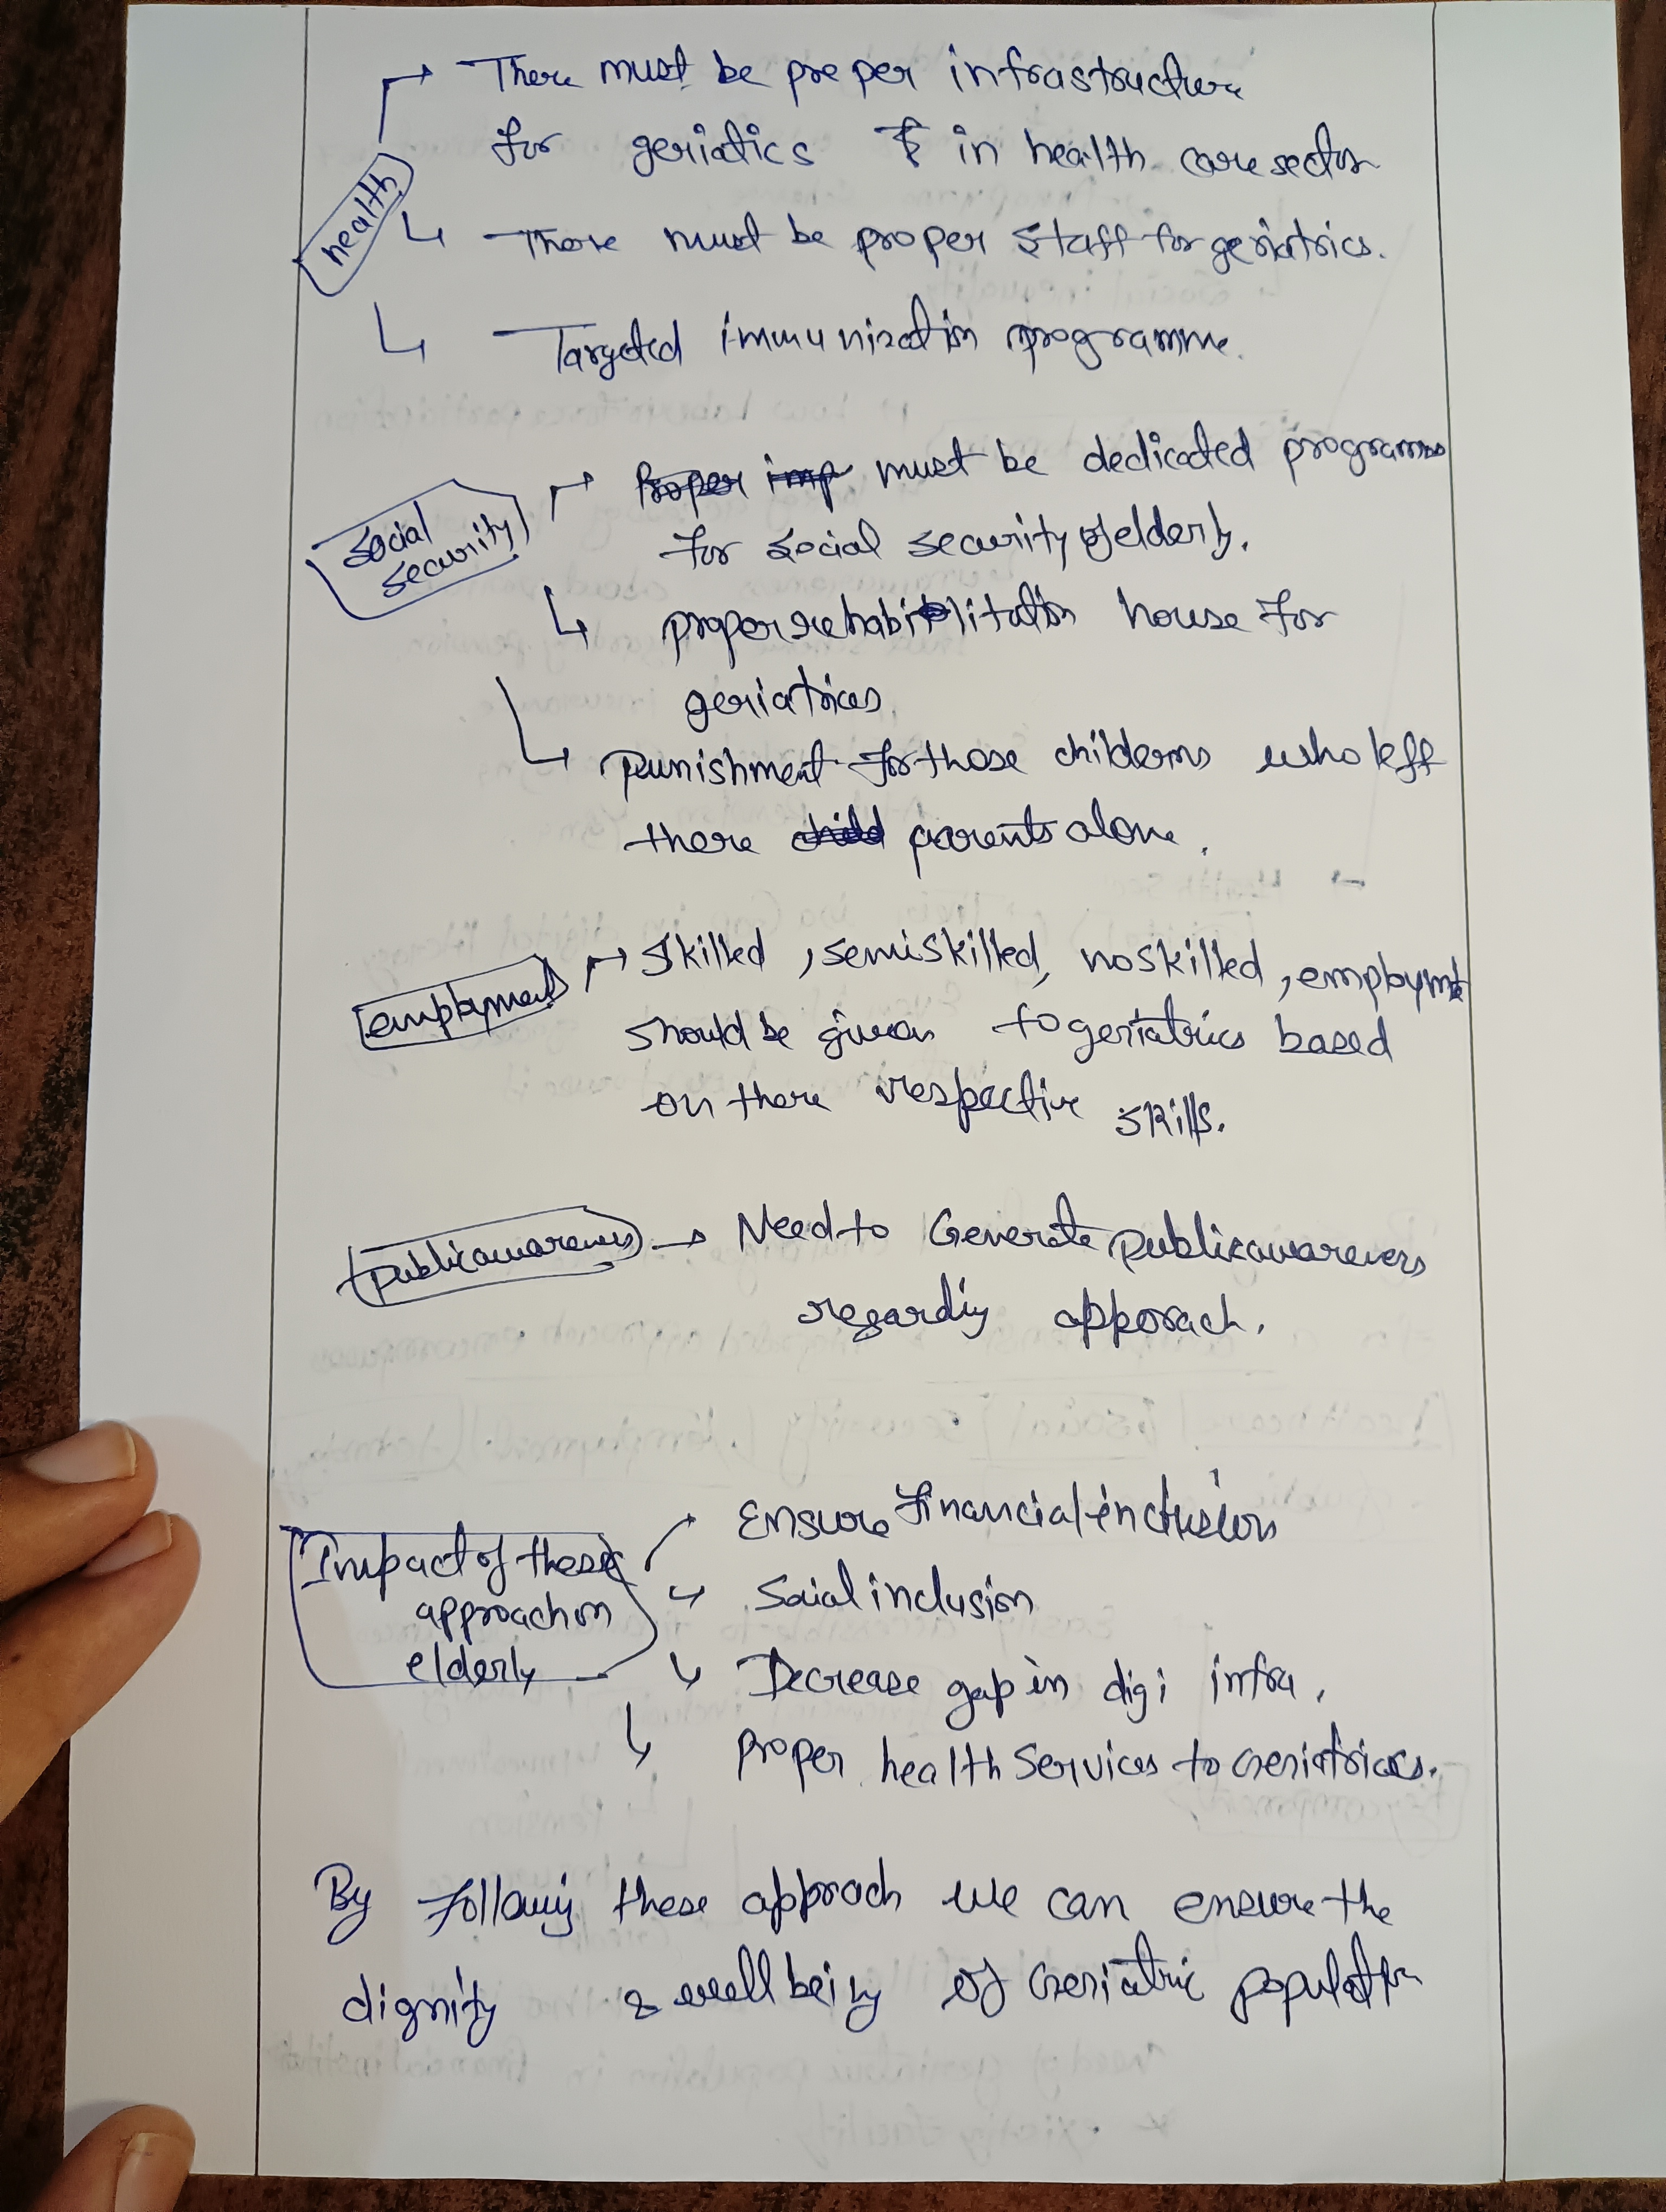 There must be proper infrastructure
for geriatics in health care sector
health
There must be proper staff for geriatrics.
Targeted immunization programme.
Proper imp must be dedicated programs
social
security
for social security of elderly.
proper rehabilitation house for
geriatrices
Punishment for those childerns who left
there child parents alone.
employment
skilled, semiskilled, noskilled, employmt
should be given to geriatrics based
on there respective skills.
public awareness
Need to Generate public awareness
regarding apporach.
Impact of these
approach on
elderly
Ensure financial inclusion
Social inclusion
Decrease gap in digi infra.
Proper health services to Geriatrices.
By following these approach we can ensure the
dignity & well being of Geriatric population